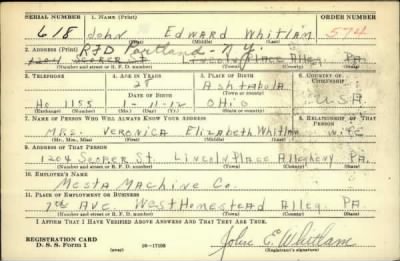 SERIAL NUMBER 1. NAME (Print) ORDER NUMBER
618 John Edward Whitlam 574
(First) (Middle) (Last)
2. ADDRESS (Print) RFD Portland - N.Y.
1204 Scoper St. Lincoln Place Alleg. PA.
(Number and street or R. F. D. number) (Town) (County) (State)
3. TELEPHONE 4. AGE IN YEARS 5. PLACE OF BIRTH 6. COUNTRY OF CITIZENSHIP
28 Ashtabula
DATE OF BIRTH (Town or county)
Ho 1155 1-11-12 OHio U.S.A.
(Exchange) (Number) (Mo.) (Day) (Yr.) (State or country)
7. NAME OF PERSON WHO WILL ALWAYS KNOW YOUR ADDRESS 8. RELATIONSHIP OF THAT PERSON
Mrs. Veronica Elizabeth Whitlam wife
(Mr., Mrs., Miss) (First) (Middle) (Last)
9. ADDRESS OF THAT PERSON
1204 Scoper St. Lincoln Place Allegheny PA.
(Number and street or R. F. D. number) (Town) (County) (State)
10. EMPLOYER'S NAME
Mesta Machine Co.
11. PLACE OF EMPLOYMENT OR BUSINESS
7th Ave. West Homestead Alleg. PA.
(Number and street or R. F. D. number) (Town) (County) (State)
I AFFIRM THAT I HAVE VERIFIED ABOVE ANSWERS AND THAT THEY ARE TRUE.
REGISTRATION CARD
D. S. S. Form 1 (over) 16-17105 John E. Whitlam
(Registrant's signature)